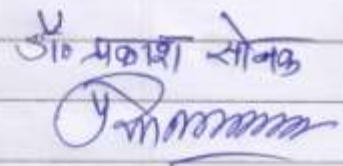 डॉ० प्रकाश सोनक